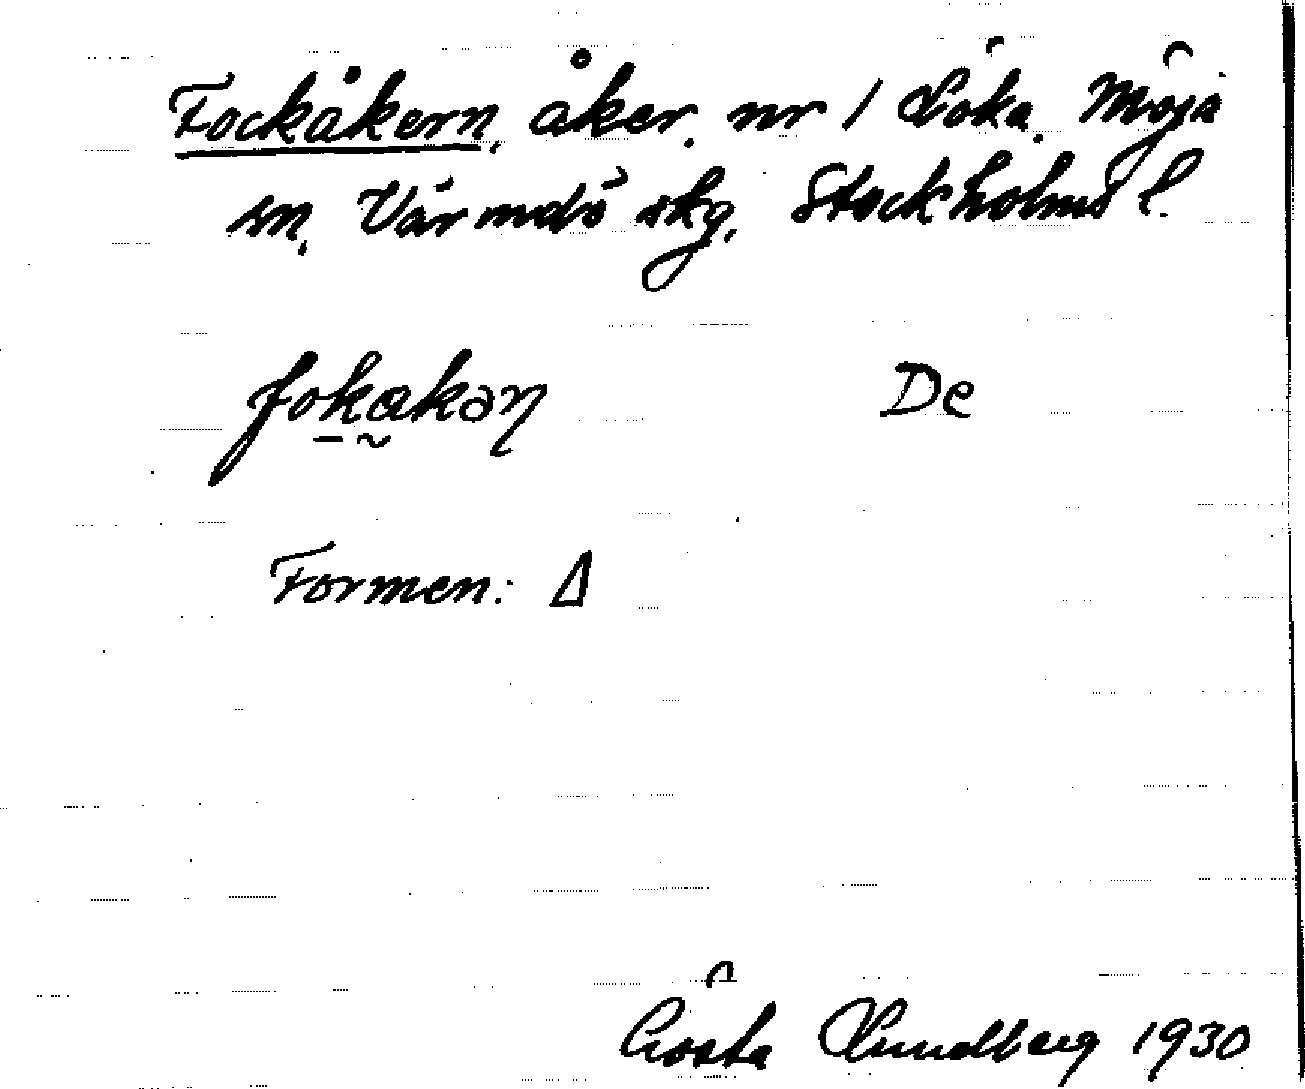 Fockåkern, åker, nr 1 Löka, Möja
sn, Värmdö skg, Stockholms l.
fok̠a̰kəɳ De
Formen: Δ
Gösta Lundberg 1930